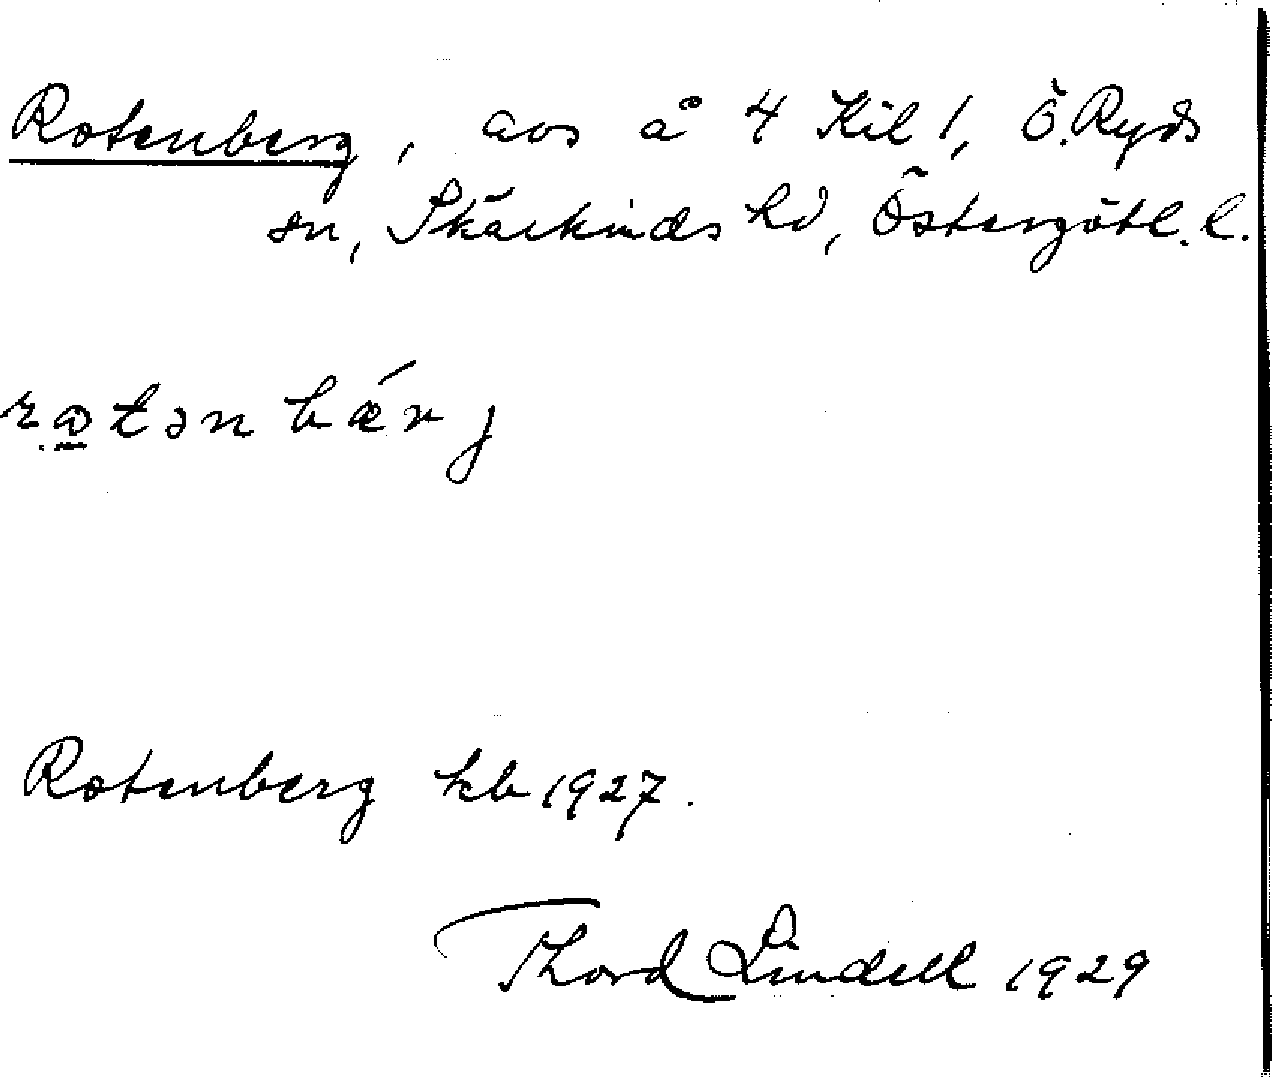 Rotenberg, avs å 4 Kil 1, Ö. Ryds
sn, Skärkinds hd, Östergötl. l.
rɷtənbǽrj
Rotenberg kb 1927.
Thord Lindell 1929